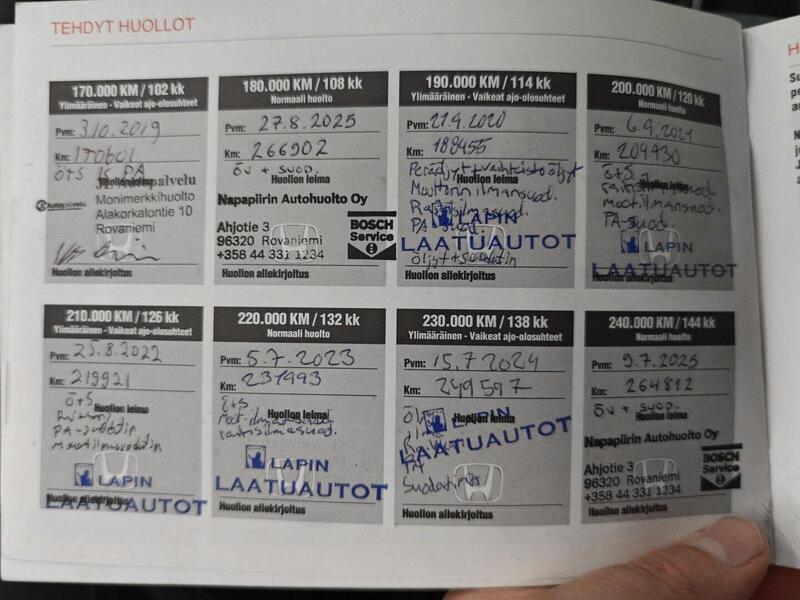 TEHDYT HUOLLOT
170.000 KM / 102 kk
Ylimääräinen - Vaikeat ajo-olosuhteet
Pvm: 3.10.2019
Km: 170601
Ö+S PA
Huollon leima
Autopalvelu
Monimerkkihuolto
Alakorkalontie 10
Rovaniemi
Huollon allekirjoitus
180.000 KM / 108 kk
Normaali huolto
Pvm: 27.8.2025
Km: 266902
ÖV + SUOD.
Huollon leima
Napapiirin Autohuolto Oy
Ahjotie 3
96320 Rovaniemi
+358 44 331 1234
BOSCH
Service
Huollon allekirjoitus
190.000 KM / 114 kk
Ylimääräinen - Vaikeat ajo-olosuhteet
Pvm: 21.9.2020
Km: 188455
Peräöljyt + vaihteisto öljyt
Huollon leima
Moottorin ilmansuod.
Raitisilmasuod.
PA-suod.
LAPIN
LAATUAUTOT
Öljyt + suodatin
Huollon allekirjoitus
200.000 KM / 120 kk
Normaali huolto
Pvm: 6.9.2021
Km: 204930
Ö+S
Huollon leima
raitisilmasuod.
moot.ilmansuod.
PA-suod.
LAPIN
LAATUAUTOT
Huollon allekirjoitus
210.000 KM / 126 kk
Ylimääräinen - Vaikeat ajo-olosuhteet
Pvm: 25.8.2022
Km: 219921
Ö+S
Huollon leima
PA-suodatin
LAPIN
LAATUAUTOT
Huollon allekirjoitus
220.000 KM / 132 kk
Normaali huolto
Pvm: 5.7.2023
Km: 231993
Ö+S
Huollon leima
raitisilmasuod.
LAPIN
LAATUAUTOT
Huollon allekirjoitus
230.000 KM / 138 kk
Ylimääräinen - Vaikeat ajo-olosuhteet
Pvm: 15.7.2024
Km: 249597
Huollon leima
LAPIN
LAATUAUTOT
PA
Suodatimet
Huollon allekirjoitus
240.000 KM / 144 kk
Normaali huolto
Pvm: 9.7.2025
Km: 264812
ÖV + SUOD.
Huollon leima
Napapiirin Autohuolto Oy
Ahjotie 3
96320 Rovaniemi
+358 44 331 1234
BOSCH
Service
Huollon allekirjoitus